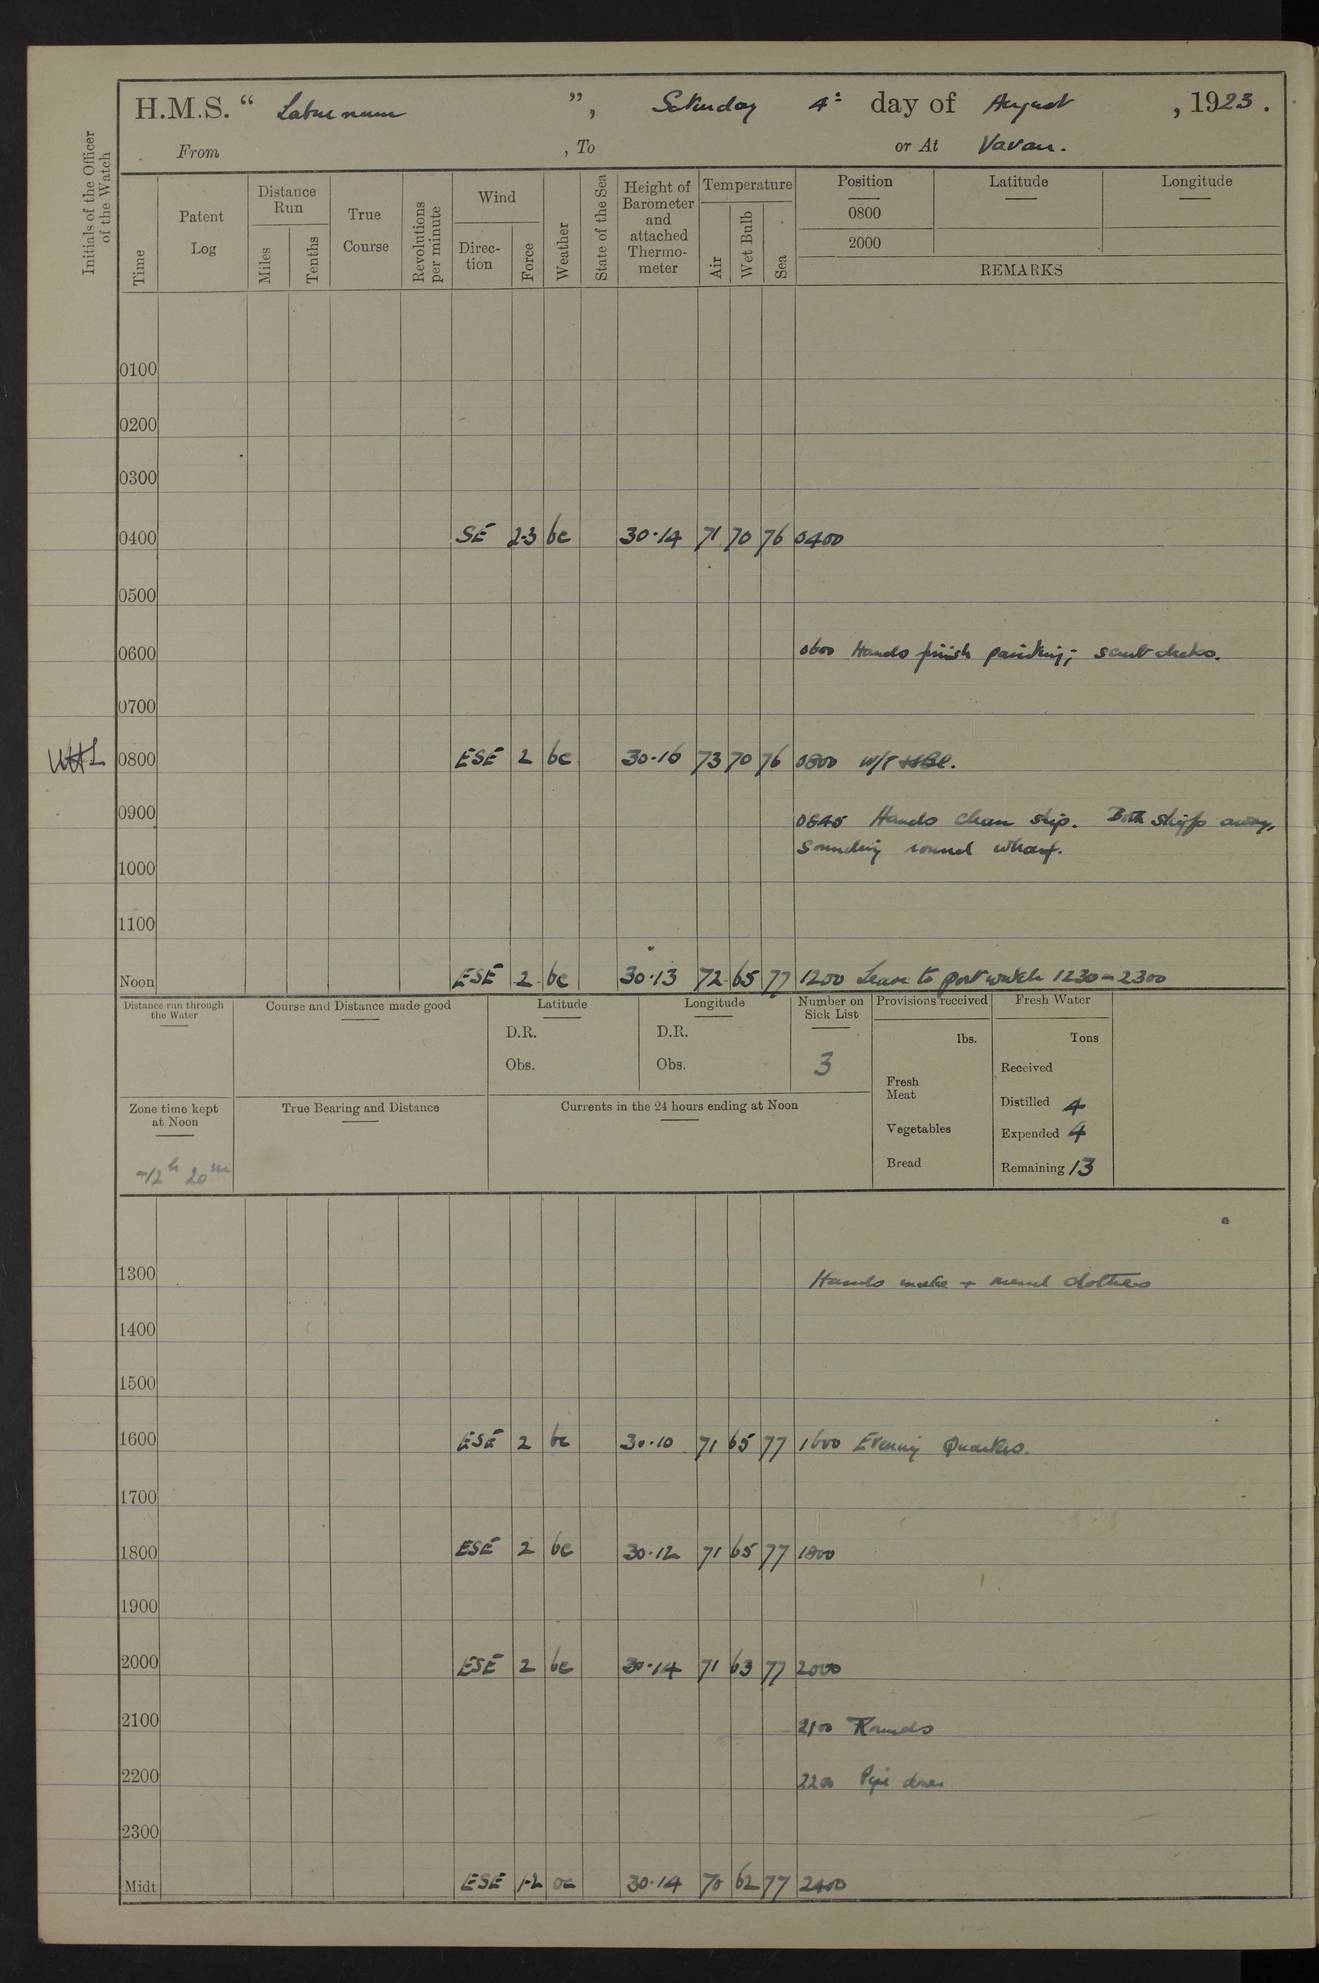 H.M.S. “ Laburnum ”, Saturday 4th day of August , 1923.
From , To or At Vavau.
Initials of the Officer of the Watch
Time
Patent Log
Distance Run
Miles
Tenths
True Course
Revolutions per minute
Wind
Direc- tion
Force
Weather
State of the Sea
Height of Barometer and attached Thermo- meter
Temperature
Air
Wet Bulb
Sea
Position Latitude Longitude
0800
2000
REMARKS
0100
0200
0300
0400 SE 2-3 bc 30.14 71 70 76 0400
0500
0600 0600 Hands finish painting; scrub decks.
0700
0800 ESE 2 bc 30.16 73 70 76 0800
0900 0845 Hands clean ship. Both skiffs away,
sounding round wharf.
1000
1100
Noon ESE 2 bc 30.13 72 65 77 1200 Leave to port watch 1230 - 2300
Distance run through the Water
Course and Distance made good
Latitude
D.R.
Obs.
Longitude
D.R.
Obs.
Number on Sick List
3
Provisions received
lbs.
Fresh Meat
Vegetables
Bread
Fresh Water
Tons
Received
Distilled 4
Expended 4
Remaining 13
Zone time kept at Noon
-12h 20m
True Bearing and Distance
Currents in the 24 hours ending at Noon
1300 Hands make + mend clothes
1400
1500
1600 ESE 2 bc 30.10 71 65 77 1600 Evening Quarters.
1700
1800 ESE 2 bc 30.12 71 65 77 1800
1900
2000 ESE 2 bc 30.14 71 63 77 2000
2100 2100 Rounds
2200 2200 Pipe down
2300
Midt ESE 1-2 bc 30.14 70 62 77 2400